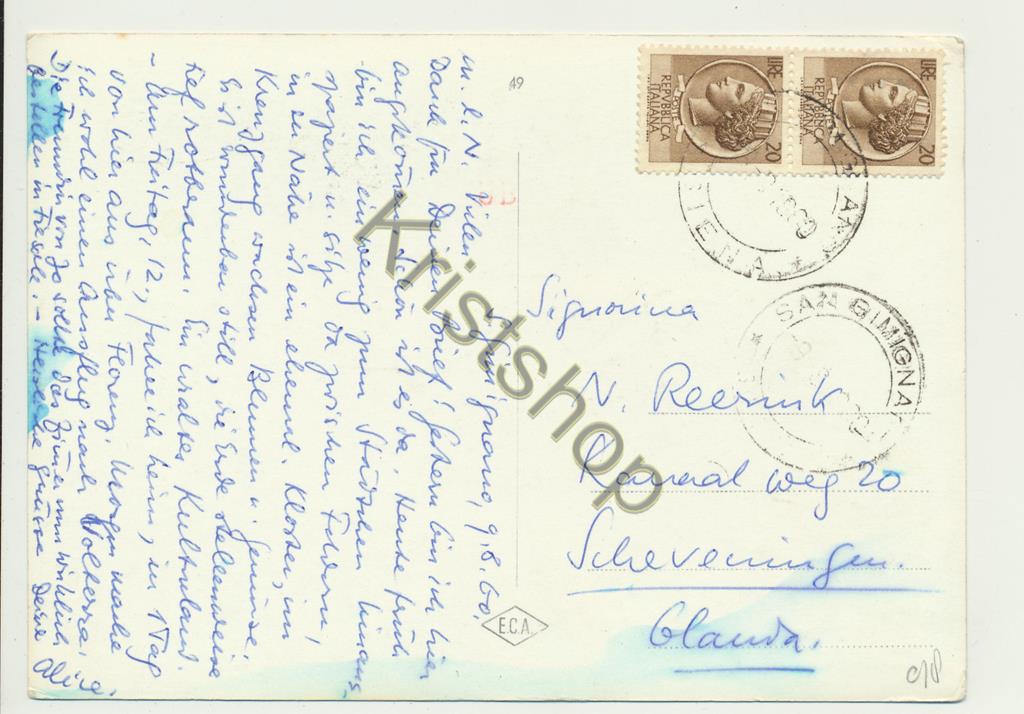 S. Gimignano, 9.8.60,
M. l. N. Vielen
Dank für Deinen Brief! Gestern bin ich hier
angekommen. Schön ist es da. Heute früh
bin ich ein wenig zum Städtchen hinaus
spaziert u. sitze da zwischen Feldern,
in der Nähe ist ein ehemal. Kloster, im
Kreuzgang wachsen Blumen u. Gemüse.
Es ist wunderbar still, die Erde stellenweise
tief rotbraun. Ein uraltes Kulturland.
- Am Freitag, 12., fahre ich heim, in 1 Tag
von hier aus über Florenz. Morgen mache
ich wohl einen Ausflug nach Volterra.
Die Freundin von Jo sollte das Zimmer nun wirklich
bestellen in Fiesole. - Herzliche Grüsse Deine
49
E.C.A.
LIRE
REPVBBLICA
ITALIANA
20
LIRE
REPVBBLICA
ITALIANA
20
SIENA
SAN GIMIGNA
Signorina
N. Reerink
Kanaal weg 20
Scheveningen.
Olanda.
Kristshop